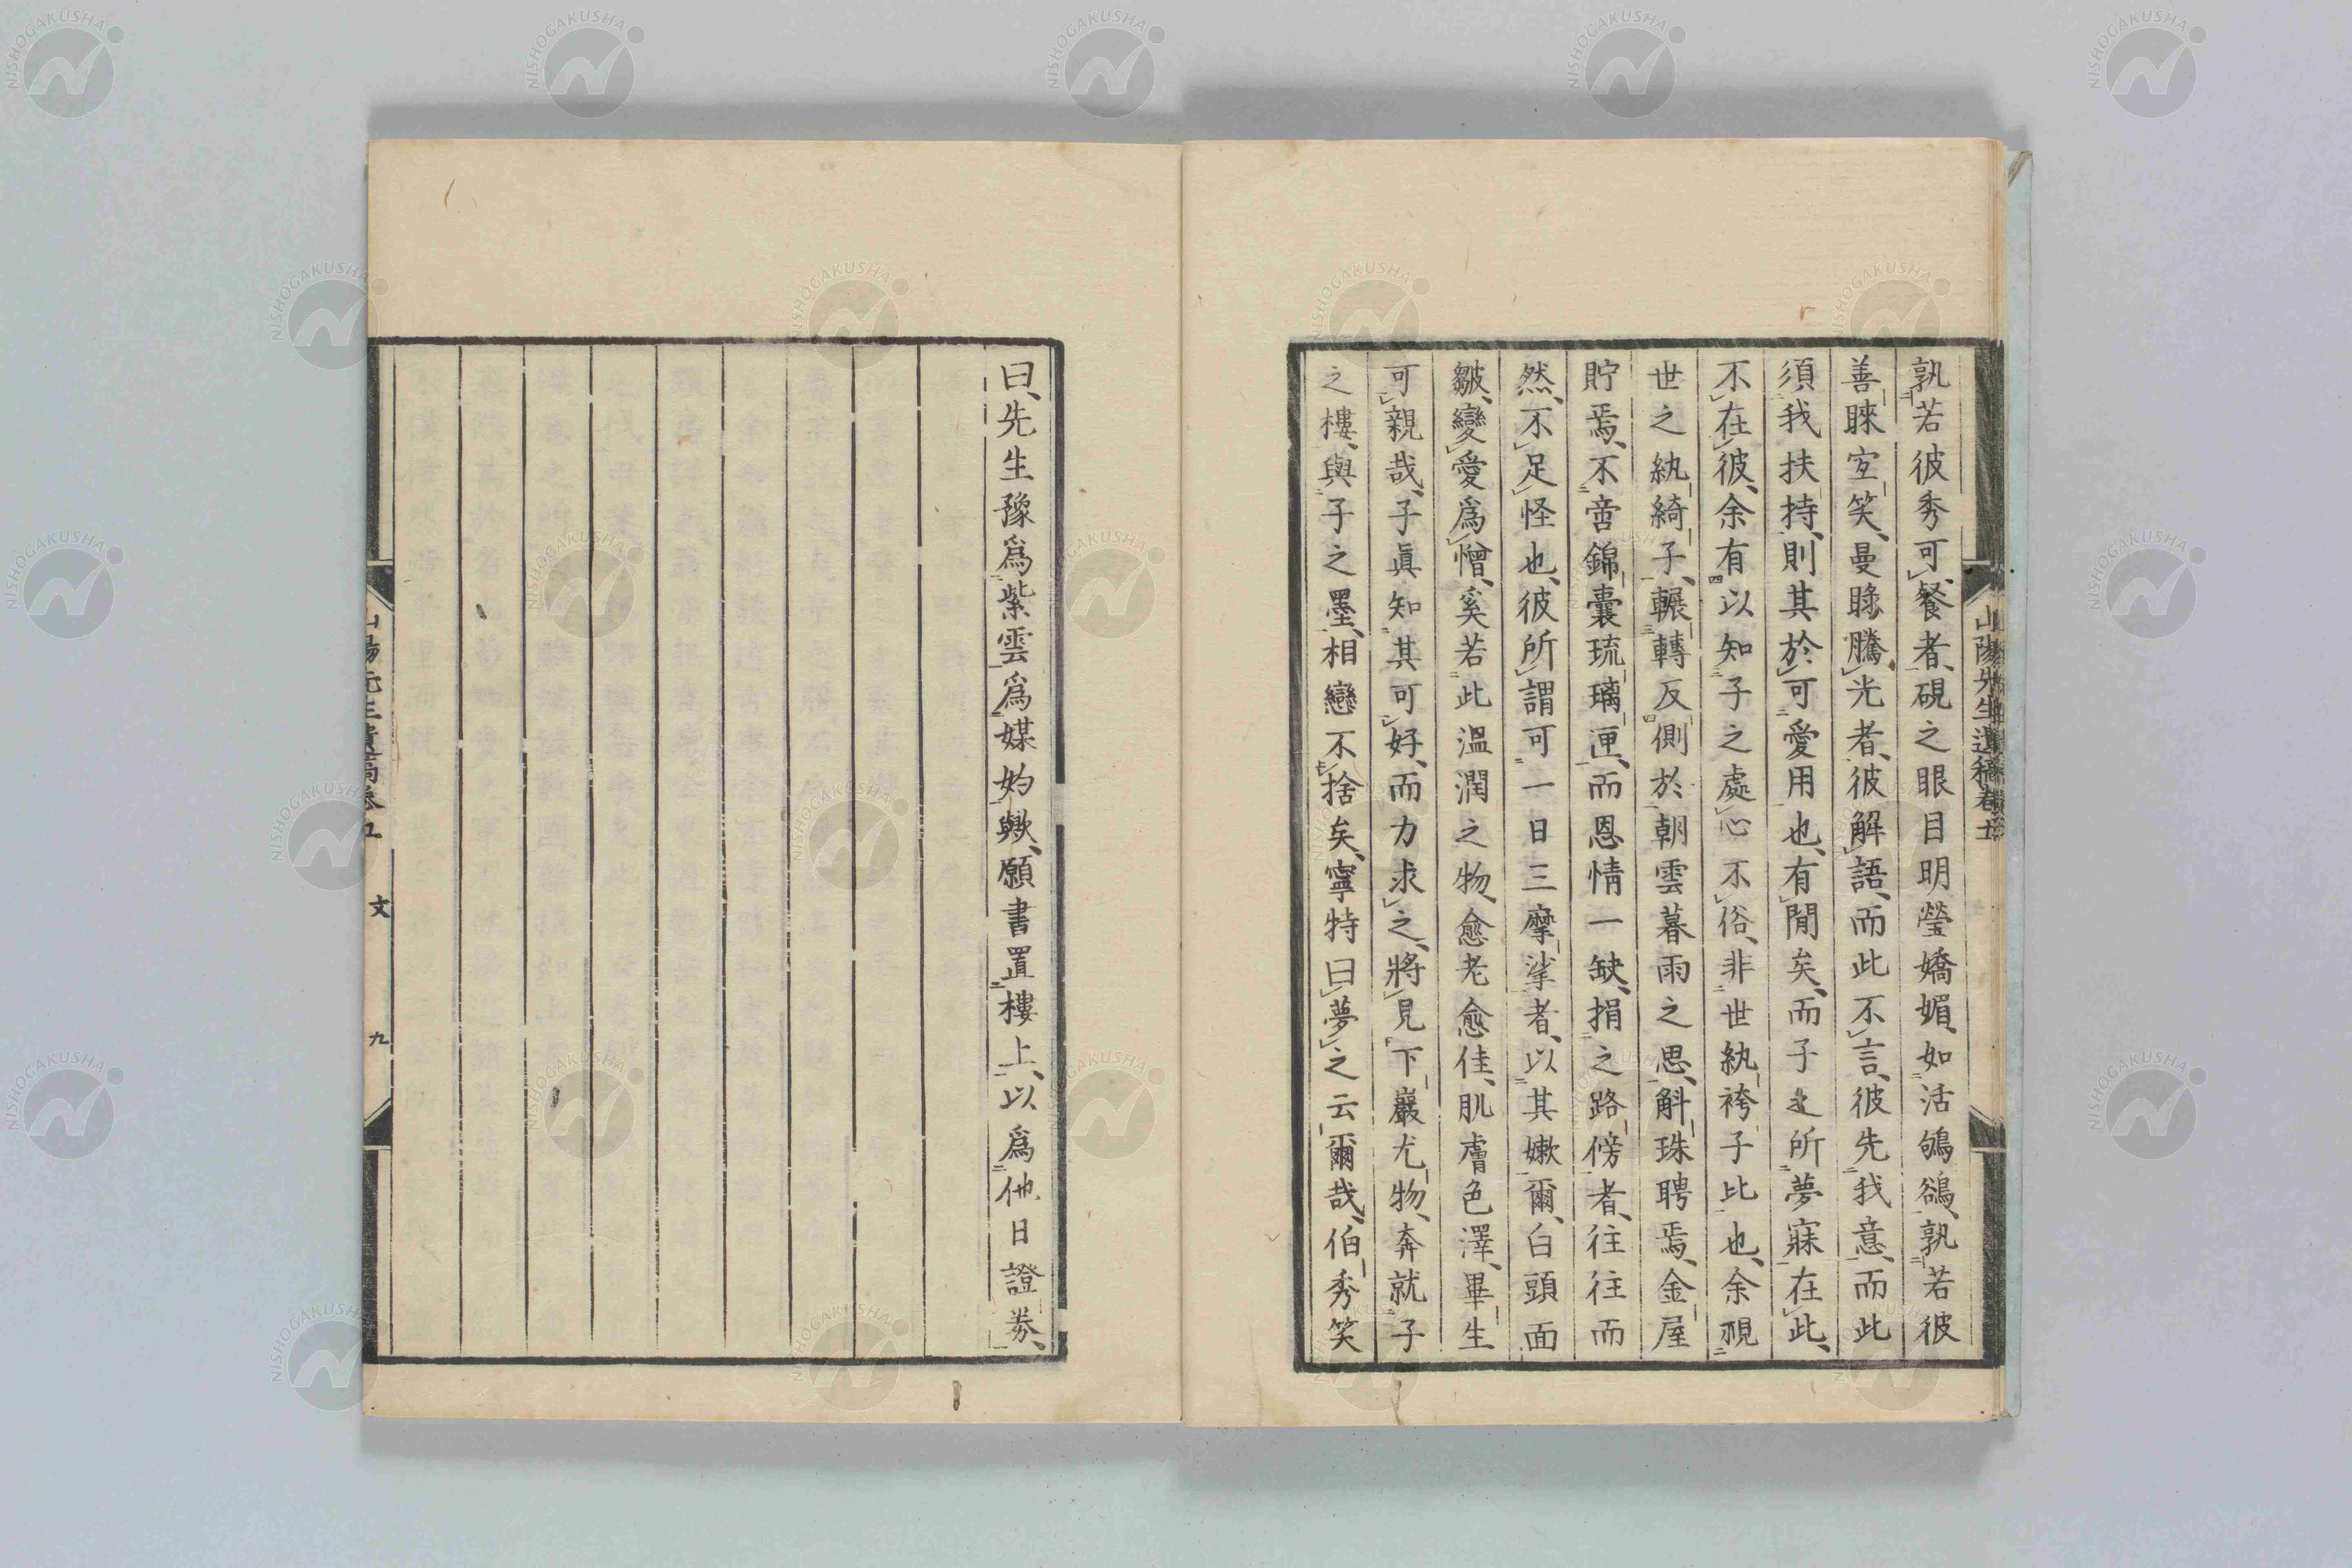 孰若彼秀可餐者、硯之眼目明瑩嬌媚、如活鴝鵒、孰若彼
善睞宜笑、曼睩騰光者、彼解語、而此不言、彼先我意、而此
須我扶持、則其於可愛用也、有間矣、而子之所夢寐在此、
不在彼、余有以知子之處心不俗、非世紈袴子比也、余視
世之紈綺子、輾轉反側於朝雲暮雨之思、斛珠聘焉、金屋
貯焉、不啻錦囊琉璃匣、而恩情一缺、捐之路傍者、往往而
然、不足怪也、彼所謂可一日三摩挲者、以其嫩爾、白頭面
皺、變愛爲憎、奚若此溫潤之物、愈老愈佳、肌膚色澤、畢生
可親哉、子眞知其可好、而力求之、將見下巖尤物、奔就子
之樓、與子之墨、相戀不捨矣、寧特曰夢之云爾哉、伯秀笑
曰、先生豫爲紫雲爲媒妁歟、願書置樓上、以爲他日證券、
山陽先生遺稿卷五 文 九